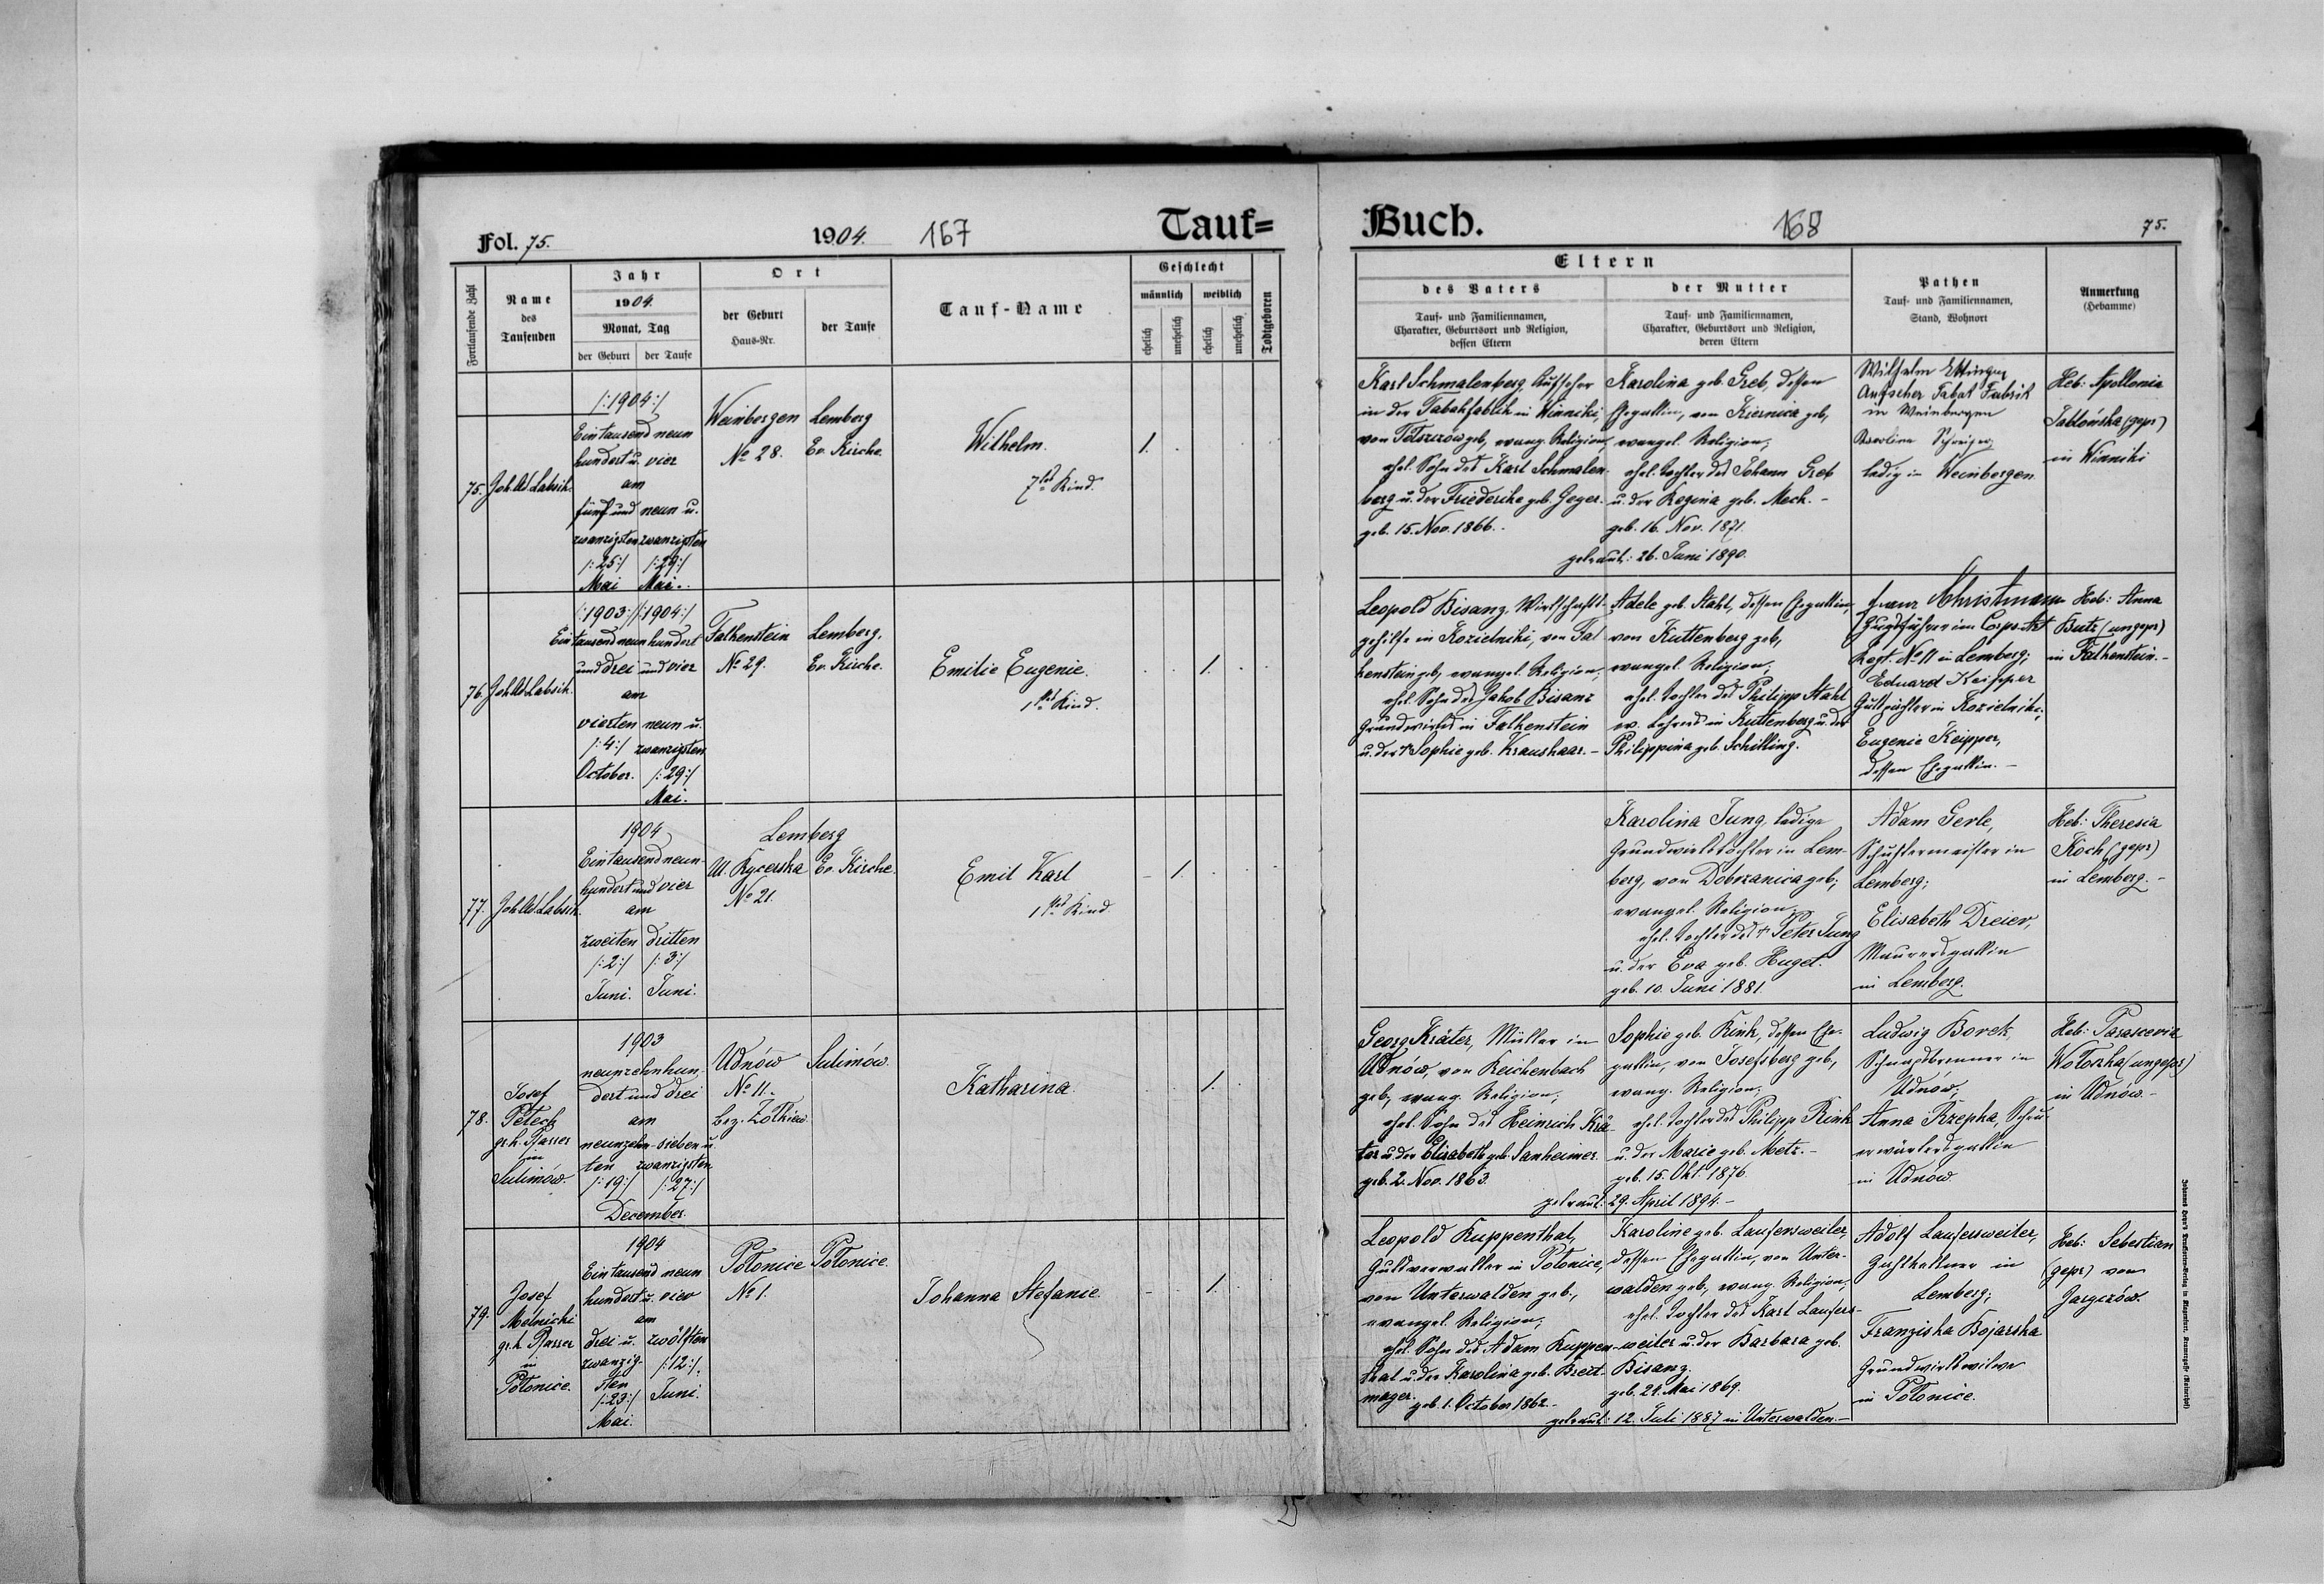 Fol. 75.
1904.
167
Tauf=
Buch.
168
75.
Fortlaufende Zahl
Name
des
Taufenden
Jahr
1904.
Monat, Tag
der Geburt
der Taufe
Ort
der Geburt
Haus-Nr.
der Taufe
Tauf-Name
Geschlecht
männlich
weiblich
ehelich
unehelich
ehelich
unehelich
Todtgeboren
Eltern
des Vaters
Tauf- und Familiennamen,
Charakter, Geburtsort und Religion,
dessen Eltern
der Mutter
Tauf- und Familiennamen,
Charakter, Geburtsort und Religion,
deren Eltern
Pathen
Tauf- und Familiennamen,
Stand, Wohnort
Anmerkung
(Hebamme)
75.
Joh. Labsik.
/:1904:/
Eintausend neun
hundert u. vier
am
fünf und neun u.
zwanzigsten zwanzigsten
/:25:/ /:29:/
Mai Mai.
Weinbergen
No 28.
Lemberg
Ev. Kirche.
Wilhelm.
7tes Kind.
1.
Karl Schmalenberg, Aufseher
in der Tabakfabrik in Winniki,
von geb, evang. Religion,
ehel. Sohn des Karl Schmalen-
berg u. der Friederike geb. Geger.
geb. 15. Nov. 1866.
Karolina geb. Greb, dessen
Ehegattin, von Kiernica geb,
evangel. Religion,
ehel. Tochter des Johann Greb
u. der Regina geb. Mech. -
geb. 16. Nov. 1871.
getraut: 26. Juni 1890.
Wilhelm Ettinger
Aufseher Tabak Fabrik
in Weinbergen
Karolina
ledig in Weinbergen
Heb: Apollonia
Jabłońska (gepr)
in Winniki
76.
Joh. Labsik.
/:1903:/ /:1904:/
Eintausend neunhundert
und drei und vier
am
vierten neun u.
/:4:/ zwanzigsten
October. /:29:/
Mai.
Falkenstein
No 29.
Lemberg,
Ev. Kirche.
Emilie Eugenie.
1tes Kind.
1.
Leopold Bisanz, Wirtschafts-
gehilfe in Kozielniki, von Fal
kenstein geb, evangel. Religion;
ehel. Sohn des Jakob Bisanz
Grundwirtes in Falkenstein
u. der + Sophie geb. Kraushaar. -
Adele geb. Stahl, dessen Ehegattin,
von Kuttenberg geb,
evangel. Religion;
ehel. Tochter des Philipp Stahl
ev. Lehrers in Kuttenberg u. der
Philippina geb. Schilling.
Franz Christmann
Zugsführer im Corps-Art
Regt. No 11 in Lemberg;
Eduard Keipper
Gutspächter in Kozielniki;
Eugenie Keipper,
dessen Ehegattin. -
Heb: Anna
Butz (ungepr)
in Falkenstein. -
77.
Joh. Labsik.
1904
Eintausend neun-
hundert und vier
am
zweiten dritten
/:2:/ /:3:/
Juni. Juni.
Lemberg
Ul. Rycerska
No 21.
Ev. Kirche.
Emil Karl
1tes Kind.
1.
Karolina Jung, ledige
Grundwirtstochter in Lem-
berg, von Dobrzanica geb;
evangel. Religion,
ehel. Tochter des + Peter Jung
u. der Eva geb. Huget.
geb. 10. Juni 1881.
Adam Gerle,
Schustermeister in
Lemberg;
Elisabeth Dreier,
Maurersgattin
in Lemberg.
Heb: Theresia
Koch (gepr)
in Lemberg. -
78.
Josef
Petech
gr. k. Pfarrer
in
Sulimów.
1903
neunzehnhun-
dert und drei
am
neunzehn- sieben u.
ten zwanzigsten
/:19:/ /:27:/
December.
Udnów
No 11.
bez. Żółkiew
Sulimów.
Katharina.
1.
Georg Kräter, Müller in
Udnów, von Reichenbach
geb, evang. Religion;
ehel. Sohn des Heinrich Krä-
ter u. der Elisabeth geb. Sanheimer.
geb. 2. Nov. 1863.
Sophie geb. Rink, dessen Ehe-
gattin, von Josefsberg geb,
evang. Religion;
ehel. Tochter des Philipp Rink
u. der Marie geb. Metz. -
geb. 15. Okt. 1876.
getraut: 29. April 1894. -
Ludwig Borek,
Schnapsbrenner in
Udnów;
Anna Rzepka,
in Udnów
Heb: Parascevia
Wołoszka (ungepr)
in Udnów. -
79.
Josef
Mełnicki
gr. k. Pfarrer
in
Połonice.
1904
Eintausend neun
hundert u. vier
am
drei u. zwölften
zwanzig- /:12:/
sten Juni.
/:23:/
Mai.
Połonice
No 1.
Połonice.
Johanna Stefanie.
1.
Leopold Kuppenthal,
Gutsverwalter in Połonice,
von Unterwalden geb.,
evangel. Religion;
ehel. Sohn des Adam Kuppen-
thal u. der Karolina geb. Breit-
mager.
geb. 1. October 1862. -
Karoline geb. Laufersweiler,
dessen Ehegattin, von Unter-
walden geb, evang. Religion,
ehel. Tochter des Karl Laufers-
weiler u. der Barbara geb.
Bisanz.
geb. 29. Mai 1869.
getraut: 12. Juli 1887 in Unterwalden. -
Adolf Laufersweiler,
in
Lemberg;
Franziska Bojarska
Grundwirtswitwe
in Połonice.
Heb: Sebestian
(gepr) von